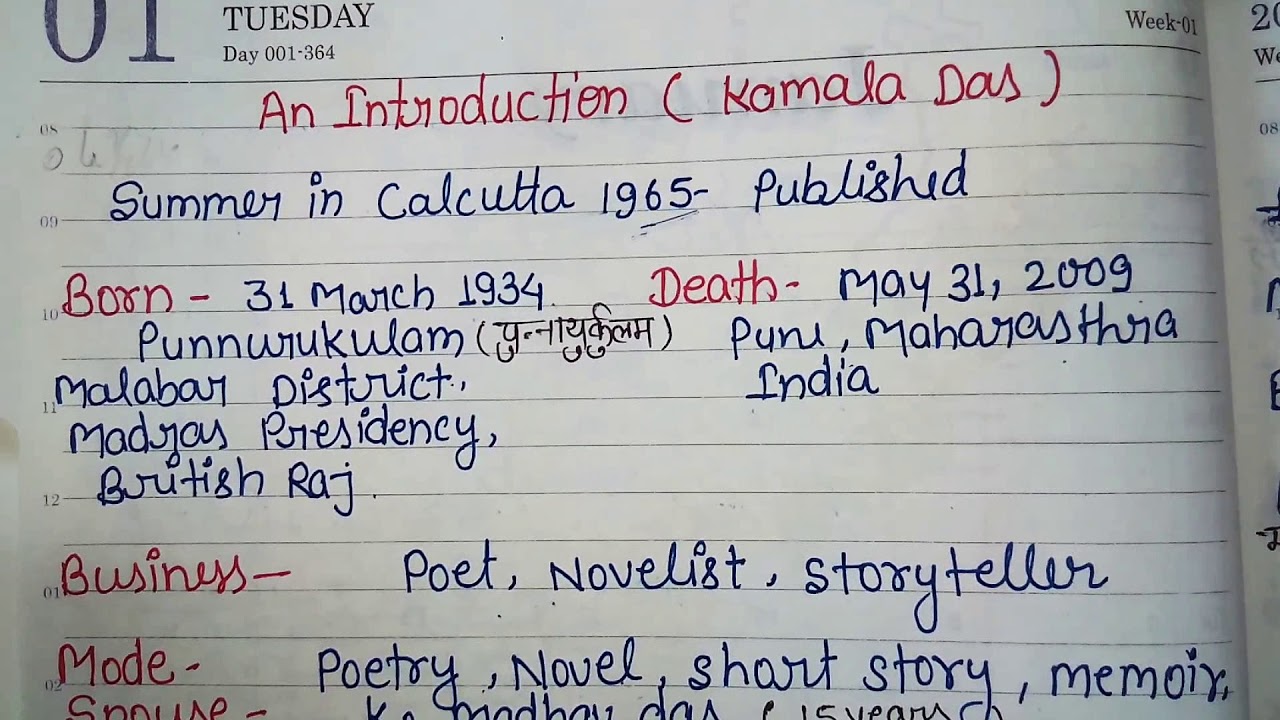 01 TUESDAY Week-01
Day 001-364
An Introduction ( Kamala Das )
08
09 Summer in Calcutta 1965- Published
Born - 31 March 1934 Death- May 31, 2009
10 Punnurukulam (पुन्नायुर्कुलम) Pune, Maharasthra
11 Malabar District, India
Madras Presidency,
12 British Raj.
01 Business - Poet, Novelist, storyteller
02 Mode - Poetry, Novel, short story, memoir,
Spouse - K. madhav das ( 15 years